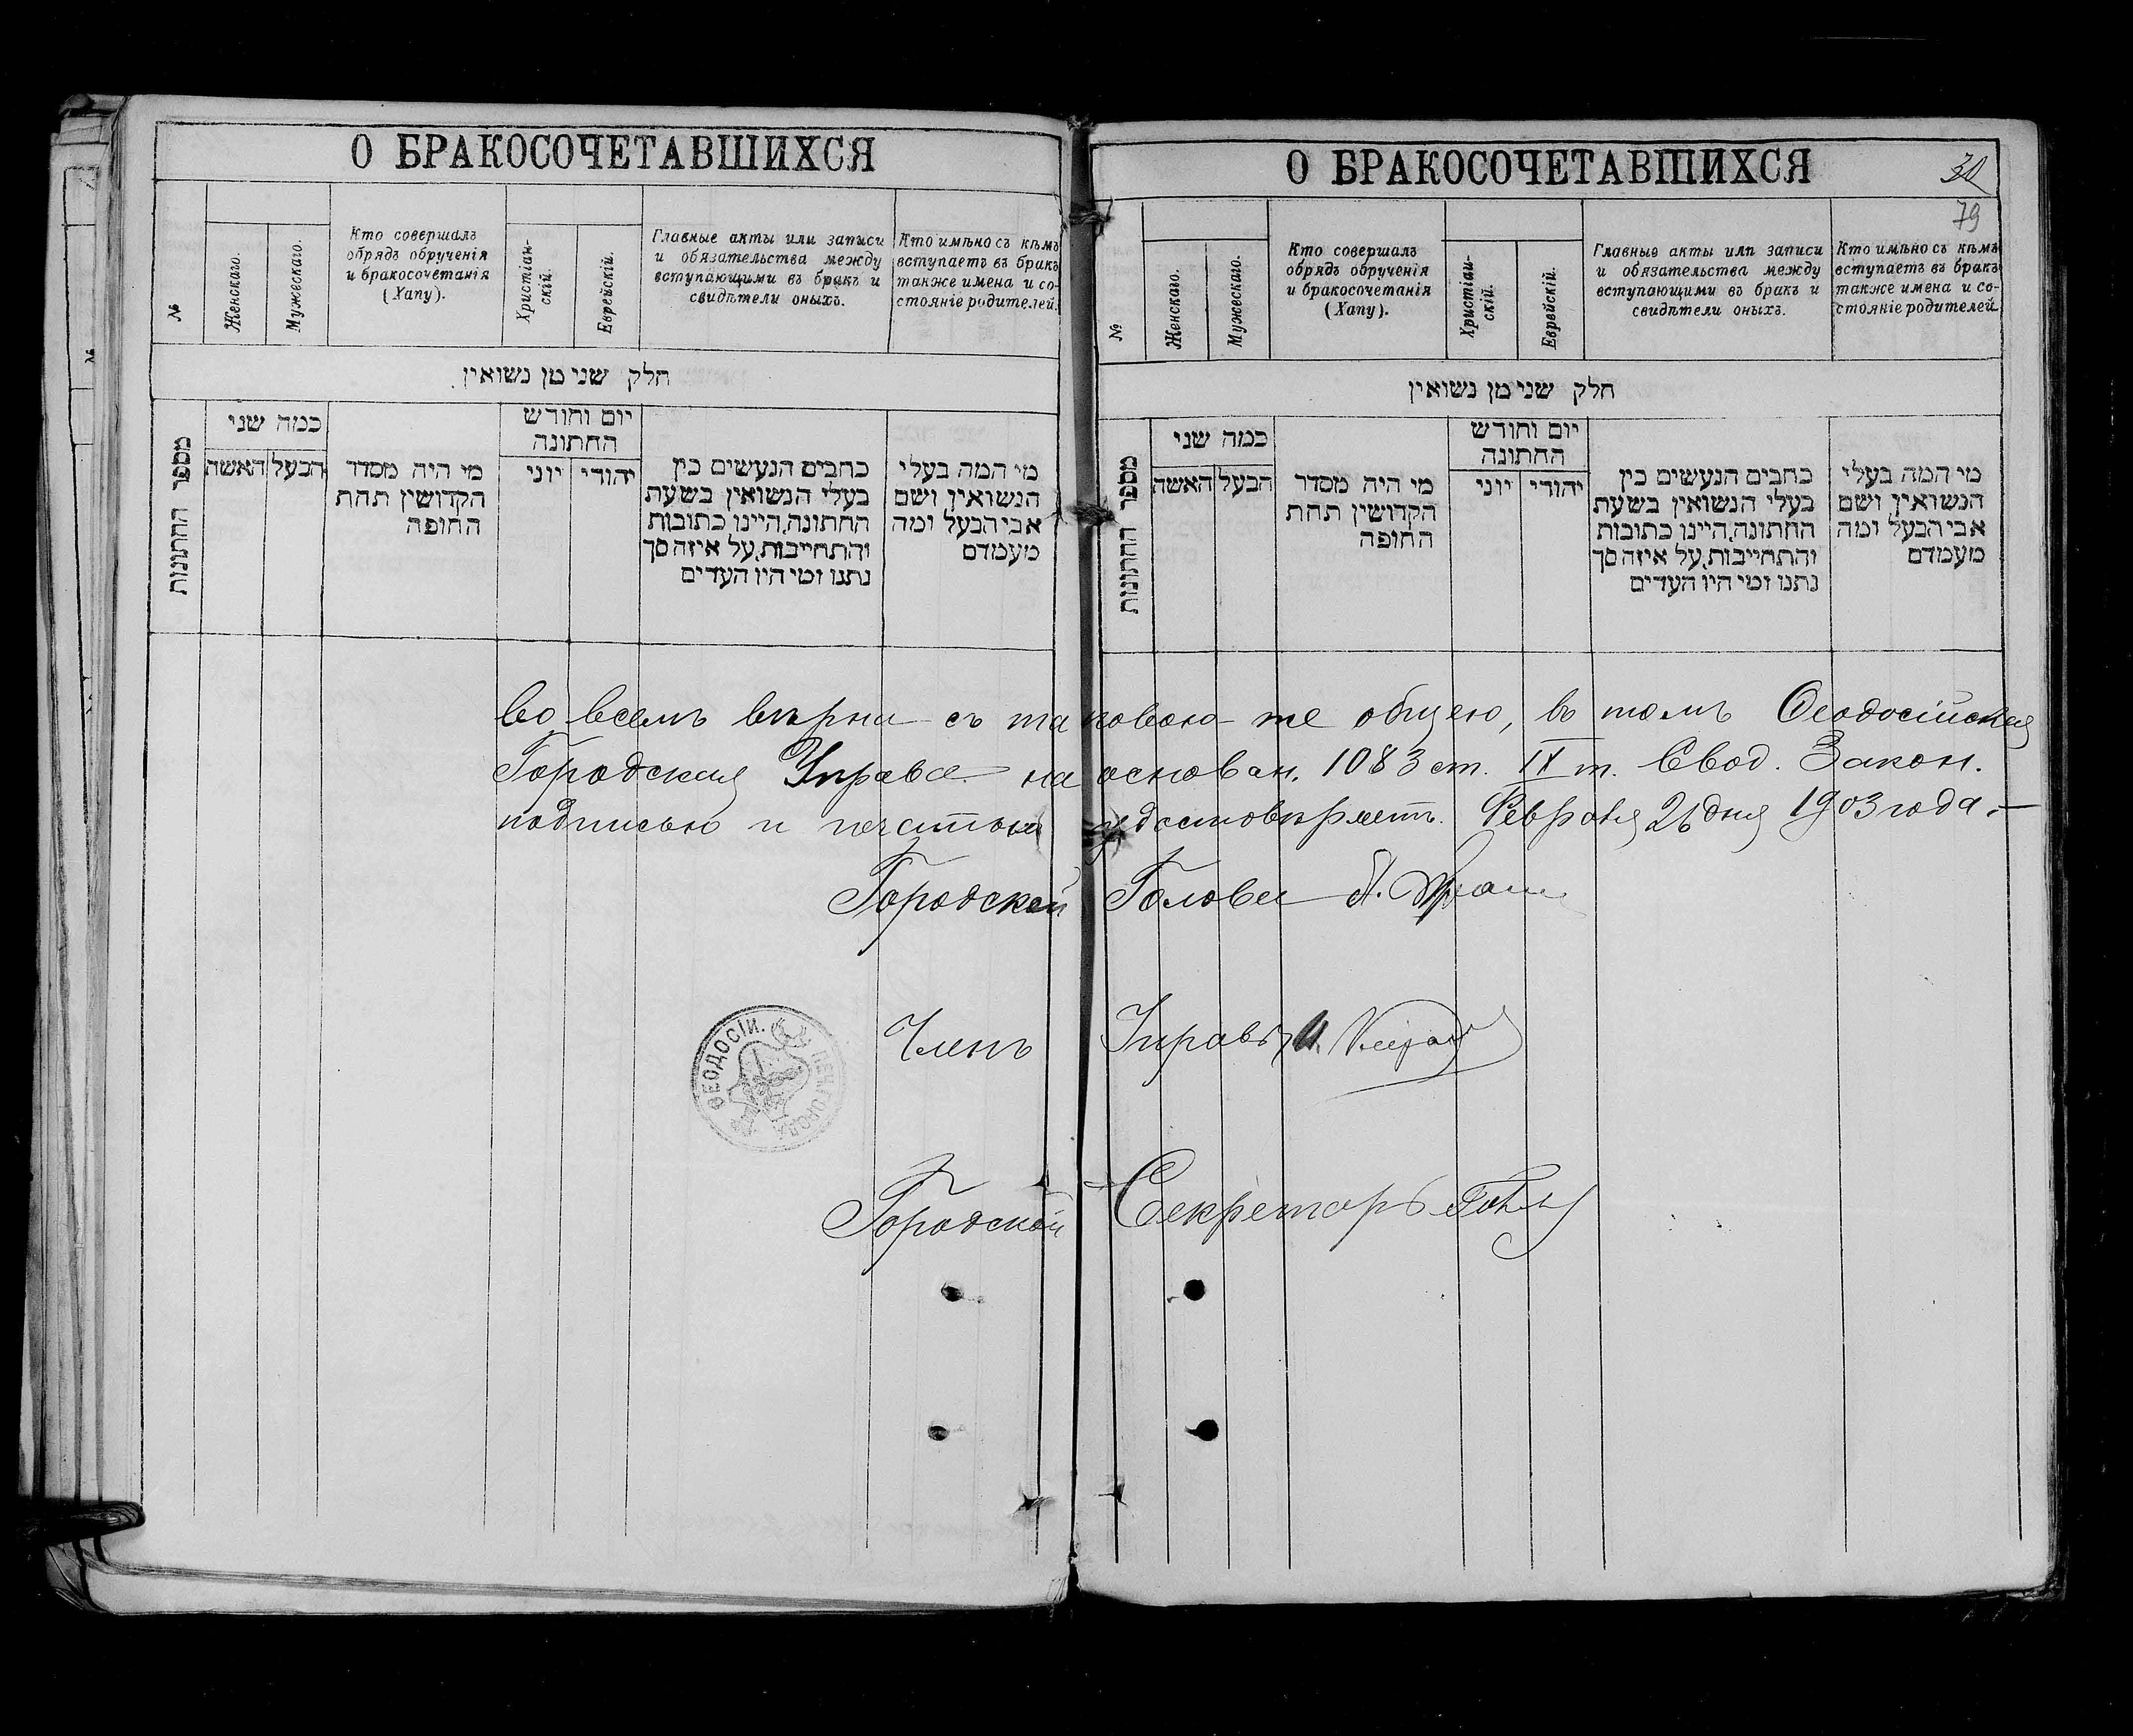 О БРАКОСОЧЕТАВШИХСЯ
№
Женскаго.
Мужескаго.
Кто совершалъ
обрядъ обрученія
и бракосочетанія
(Хапу).
Христіан-
скій.
Еврейскій.
Главные акты или записи
и обязательства между
вступающими въ бракъ и
свидѣтели оныхъ.
Кто имѣно съ кѣмъ
вступаетъ въ бракъ
также имена и со-
стояніе родителей.
חלק שני מן נשואין
מספר החתונות
כמה שני
האשה
הבעל
מי היה מסדר
הקדושין תחת
החופה
יום וחודש
החתונה
יוני
יהודי
כתבים הנעשים בין
בעלי הנשואין בשעת
החתונה, היינו כתובות
והתחייבות, על איזה סך
נתנו ומי היו העדים
מי המה בעלי
הנשואין ושם
אבי הבעל ומה
מעמדם
О БРАКОСОЧЕТАВШИХСЯ
30
79
№
Женскаго.
Мужескаго.
Кто совершалъ
обрядъ обрученія
и бракосочетанія
(Хапу).
Христіан-
скій.
Еврейскій.
Главные акты или записи
и обязательства между
вступающими въ бракъ и
свидѣтели оныхъ.
Кто имѣно съ кѣмъ
вступаетъ въ бракъ
также имена и со-
стояніе родителей
חלק שני מן נשואין
מספר החתונות
כמה שני
האשה
הבעל
מי היה מסדר
הקדושין תחת
החופה
יום וחודש
החתונה
יוני
יהודי
כתבים הנעשים בין
בעלי הנשואין בשעת
החתונה, היינו כתובות
והתחייבות, על איזה סך
נתנו ומי היו העדים
מי המה בעלי
הנשואין ושם
אבי הבעל ומה
מעמדם
во всемъ вѣрна съ таковою же общею, въ томъ Ѳеодосійская
Городская Управа на основан. 1083 ст. IX т. Свод. Закон.
подписью и печатью удостовѣряетъ. Февраля 26 дня 1903 года.—
Городской Голова
Членъ Управы
ѲЕОДОСІИ. ПЕЧ. ГОРОДА
Городской Секретарь